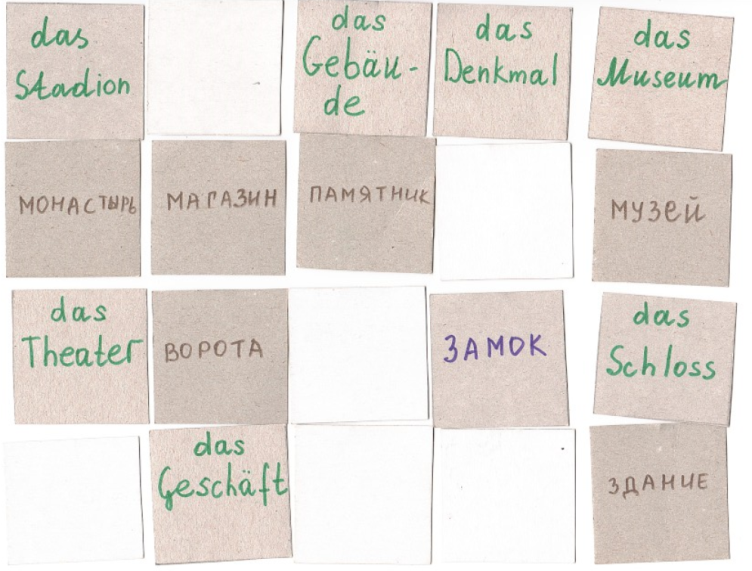 das
Stadion
das
Gebäu-
de
das
Denkmal
das
Museum
МОНАСТЫРЬ
МАГАЗИН
ПАМЯТНИК
МУЗЕЙ
das
Theater
ВОРОТА
ЗАМОК
das
Schloss
das
Geschäft
ЗДАНИЕ